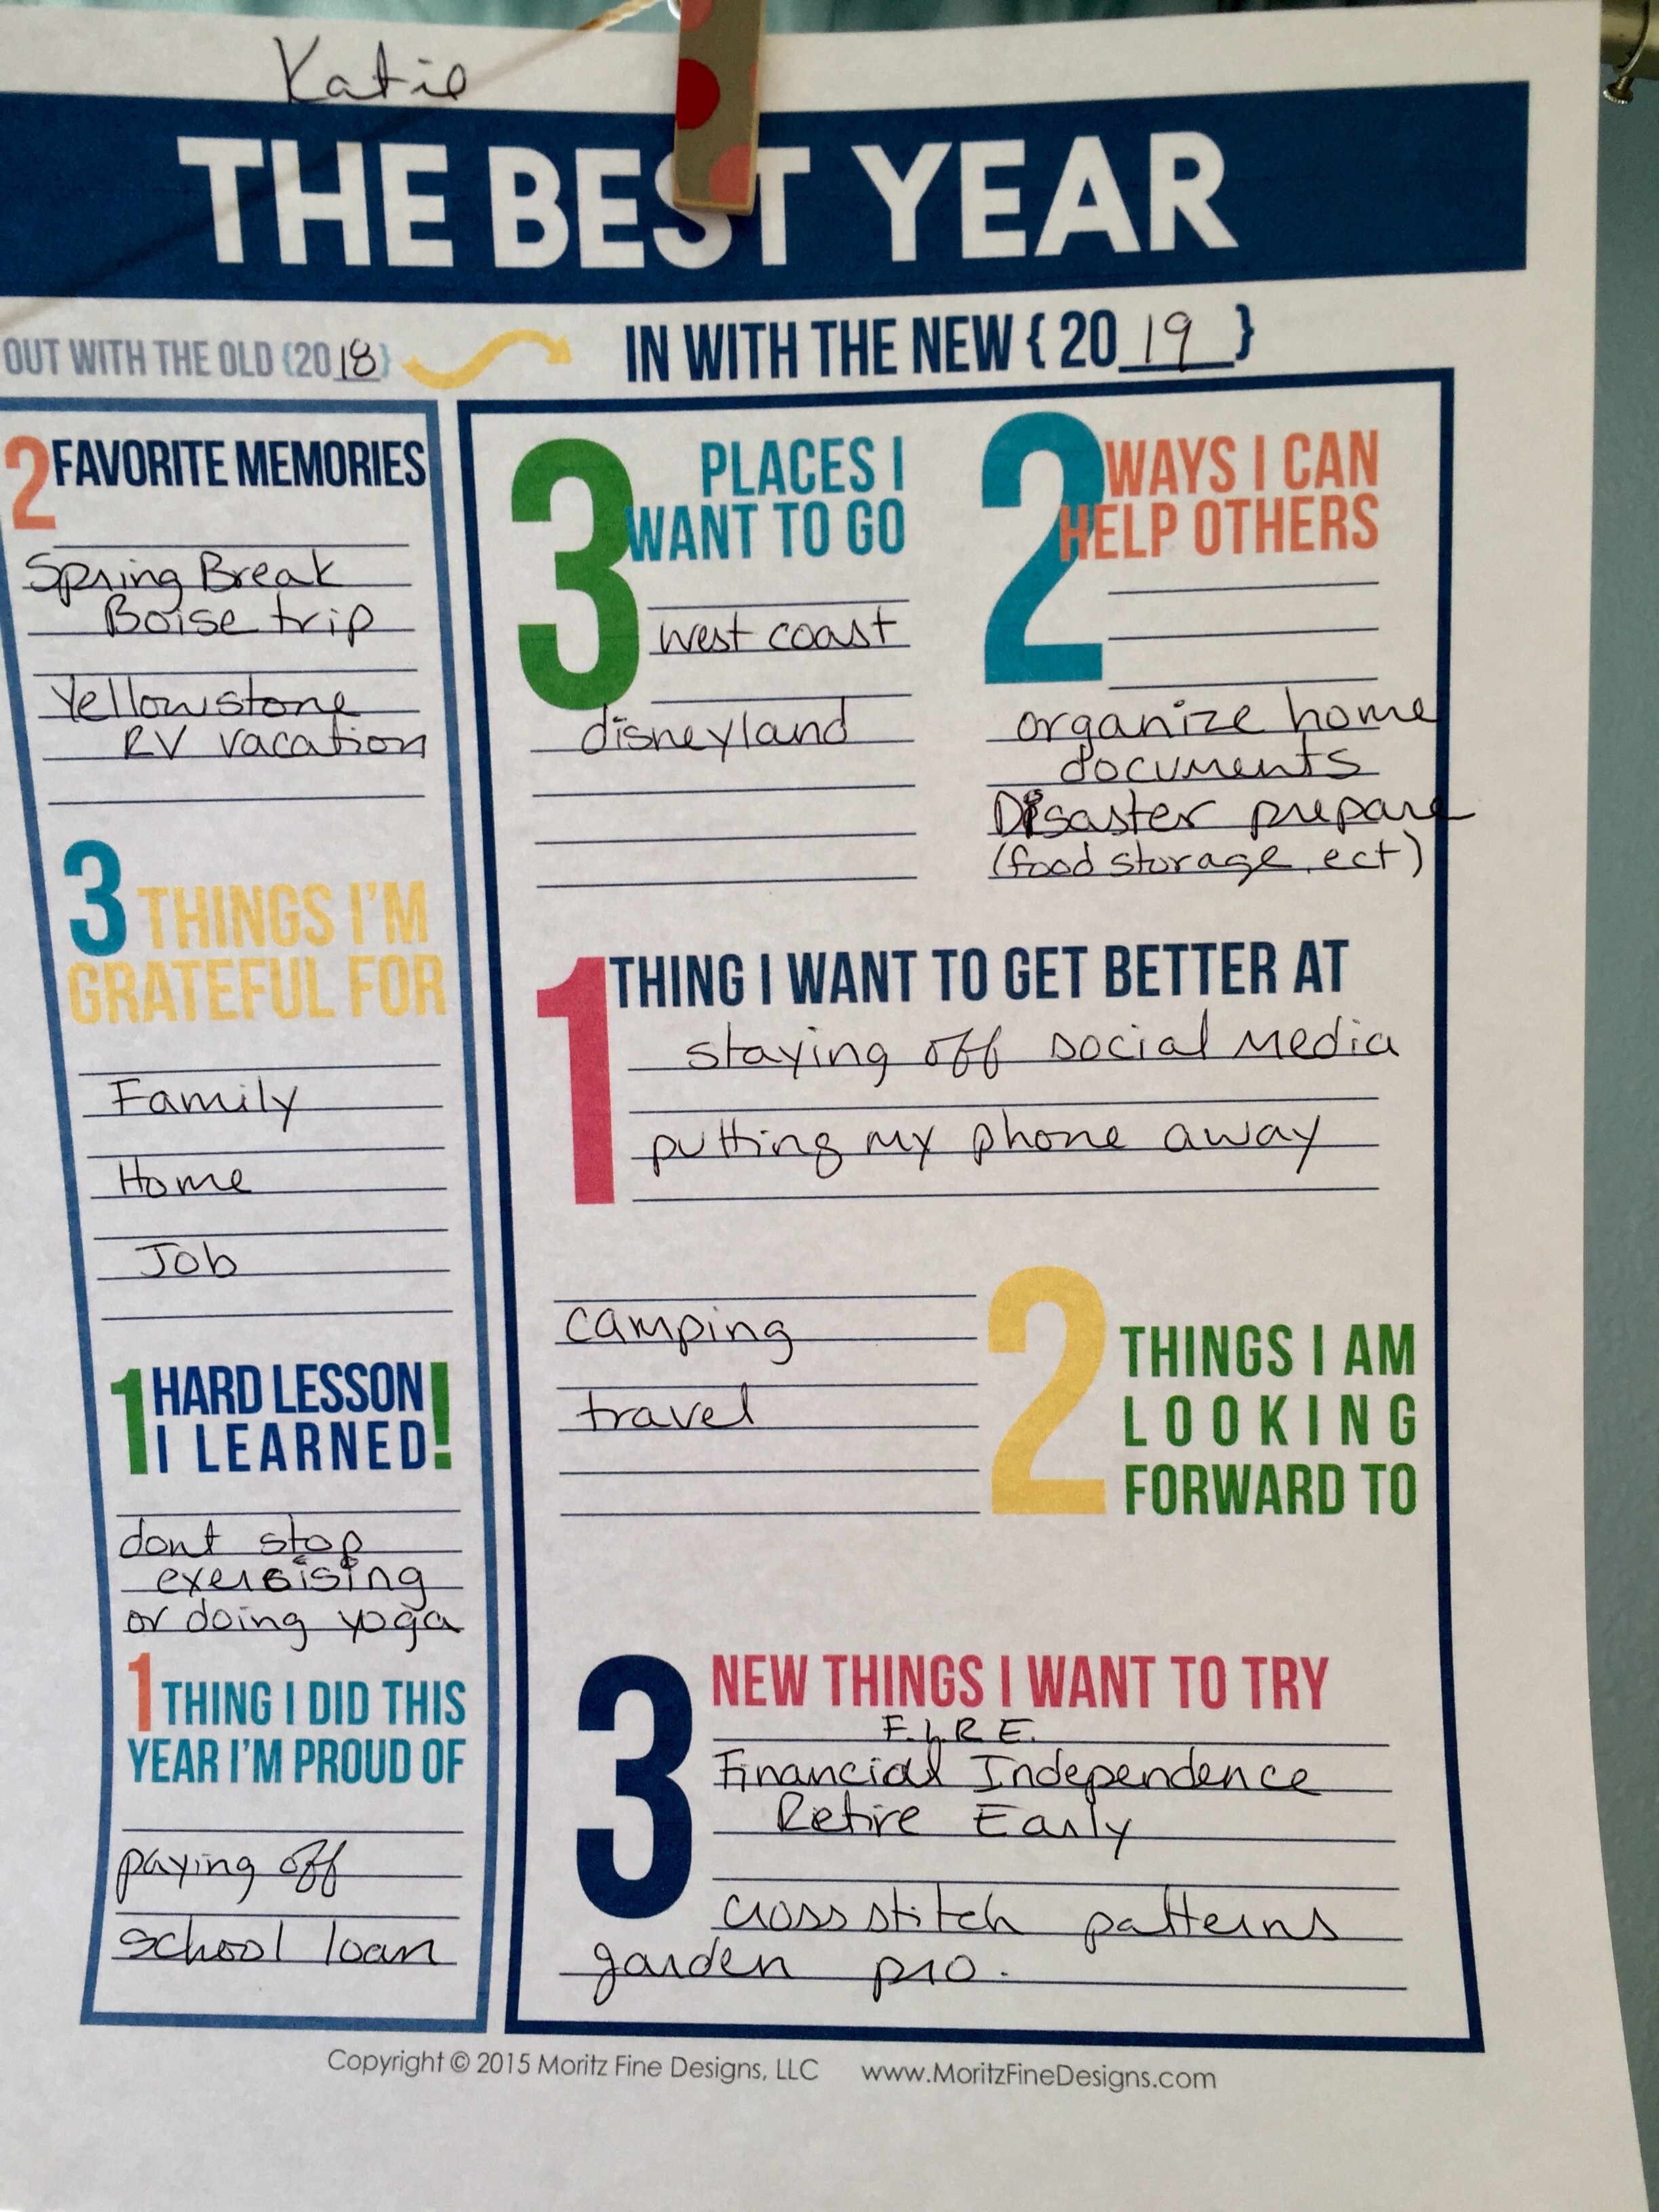 Katie
THE BEST YEAR
OUT WITH THE OLD {2018}
IN WITH THE NEW { 20 19 }
2 FAVORITE MEMORIES
Spring Break
Boise trip
Yellowstone
RV vacation
3 THINGS I'M
GRATEFUL FOR
Family
Home
Job
1 HARD LESSON
I LEARNED!
dont stop
exercising
or doing yoga
1 THING I DID THIS
YEAR I'M PROUD OF
paying off
school loan
3 PLACES I
WANT TO GO
west coast
disneyland
2 WAYS I CAN
HELP OTHERS
organize home
documents
Disaster prepare
(food storage, ect)
1 THING I WANT TO GET BETTER AT
staying off social media
putting my phone away
camping
travel
2 THINGS I AM
LOOKING
FORWARD TO
3 NEW THINGS I WANT TO TRY
F.I.R.E.
Financial Independence
Retire Early
cross stitch patterns
garden pro.
Copyright © 2015 Moritz Fine Designs, LLC www.MoritzFineDesigns.com